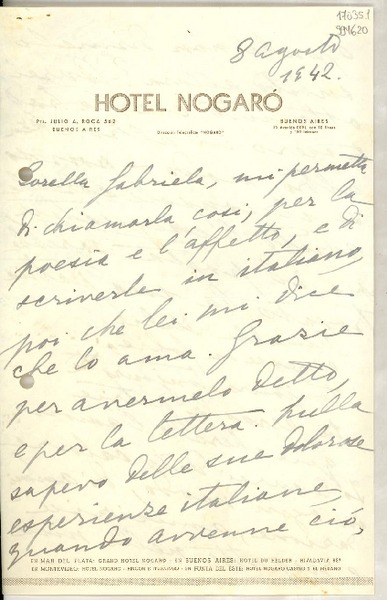 17035.1
991620
8 agosto
1942.
HOTEL NOGARÓ
Pte. JULIO A. ROCA 562
BUENOS AIRES
Dirección Telegráfica "NOGARO"
BUENOS AIRES
Sorella Gabriela, mi permetta
di chiamarla così, per la
poesia e l'affetto, e di
scriverle in italiano,
poi che lei mi dice
che lo ama. Grazie
per avermelo detto,
e per la lettera. Nulla
sapevo delle sue dolorose
esperienze italiane,
quando avvenne ciò,
EN MAR DEL PLATA: GRAND HOTEL NOGARO - EN BUENOS AIRES: HOTEL DU HELDER - RIVADAVIA 857
EN MONTEVIDEO: HOTEL NOGARO - EN PUNTA DEL ESTE: HOTEL NOGARO